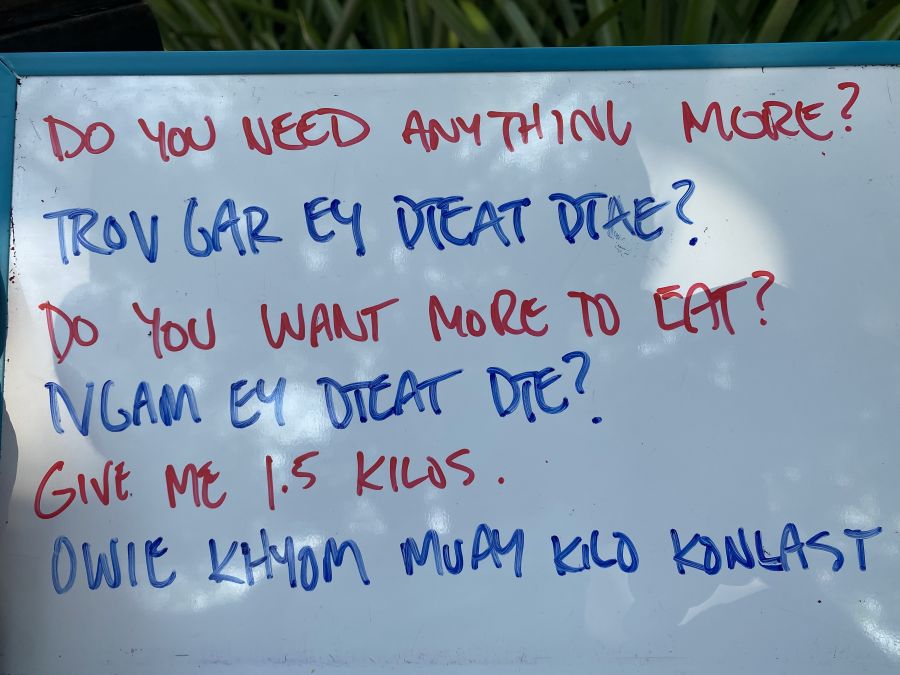 DO YOU NEED ANYTHING MORE?
TROV GAR EY DTEAT DTAE?
DO YOU WANT MORE TO EAT?
NGAM EY DTEAT DTE?
GIVE ME 1.5 KILOS.
OWIE KHYOM MUAY KILO KONLAST